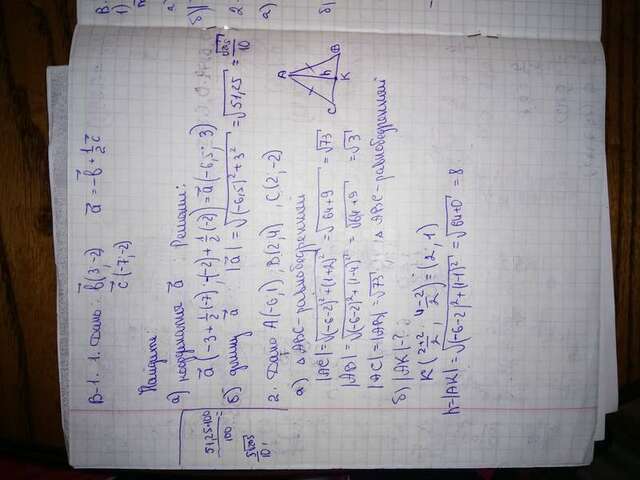 В-1. 1. Дано: b⃗(3,-2) a⃗ = -b⃗ + 1/2 c⃗
c⃗(-7,-2)
Найдите:
а) координаты a⃗ Решение:
a⃗(-3+1/2(-7); -(-2)+1/2(-2)) = a⃗(-6,5; 3)
б) длину a⃗ |a⃗| = √((-6,5)²+3²) = √51,25 =
51,25·100
100
10
2. Дано А(-6,1), В(2,4), С(2,-2)
а) △ABC-равнобедренный
|AC| = √((-6-2)²+(1+2)²) = √(64+9) = √73
|AB| = √((-6-2)²+(1-4)²) = √(64+9) = √3
|AC| = |AB| = √73, △ABC-равнобедренный
б) |AK|-?
K((2+2)/2, (4-2)/2) = (2, 1)
h-|AK| = √((-6-2)²+(1-1)²) = √(64+0) = 8
A
C
h
B
K
В.
1)
а)
б)
2.
а)
б)